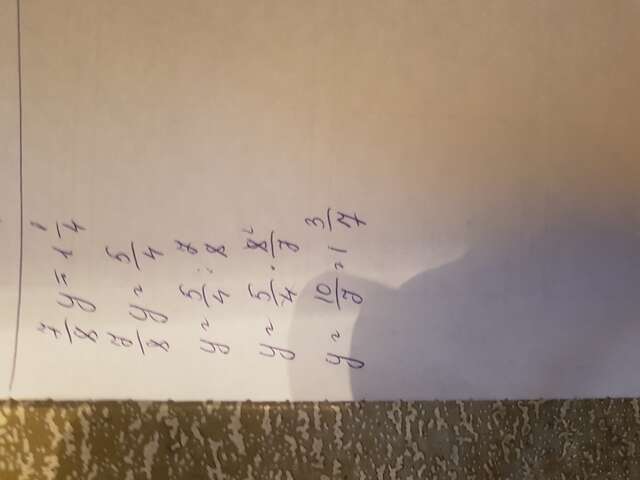 7/8 y = 1 1/4
7/8 y = 5/4
y = 5/4 : 7/8
y = 5/4 · 8²/7
y = 10/7 = 1 3/7